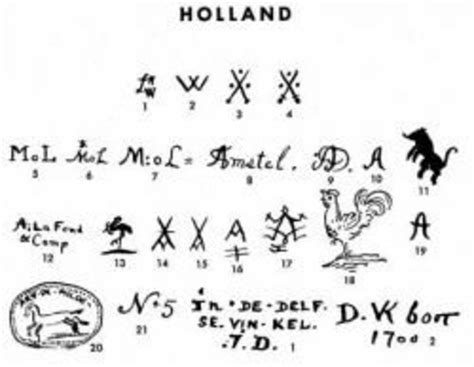 HOLLAND
W
1 2 3 4
M:oL MoL M:oL= Amstel. D. A
5 6 7 8 9 10 11
A: La Fond
& Comp A
12 13 14 15 16 17 18 19
N:5
20 21
in·DE·DELF.
SE.VIN·KEL.
.T.D. 1
D.VK boot
1700 2